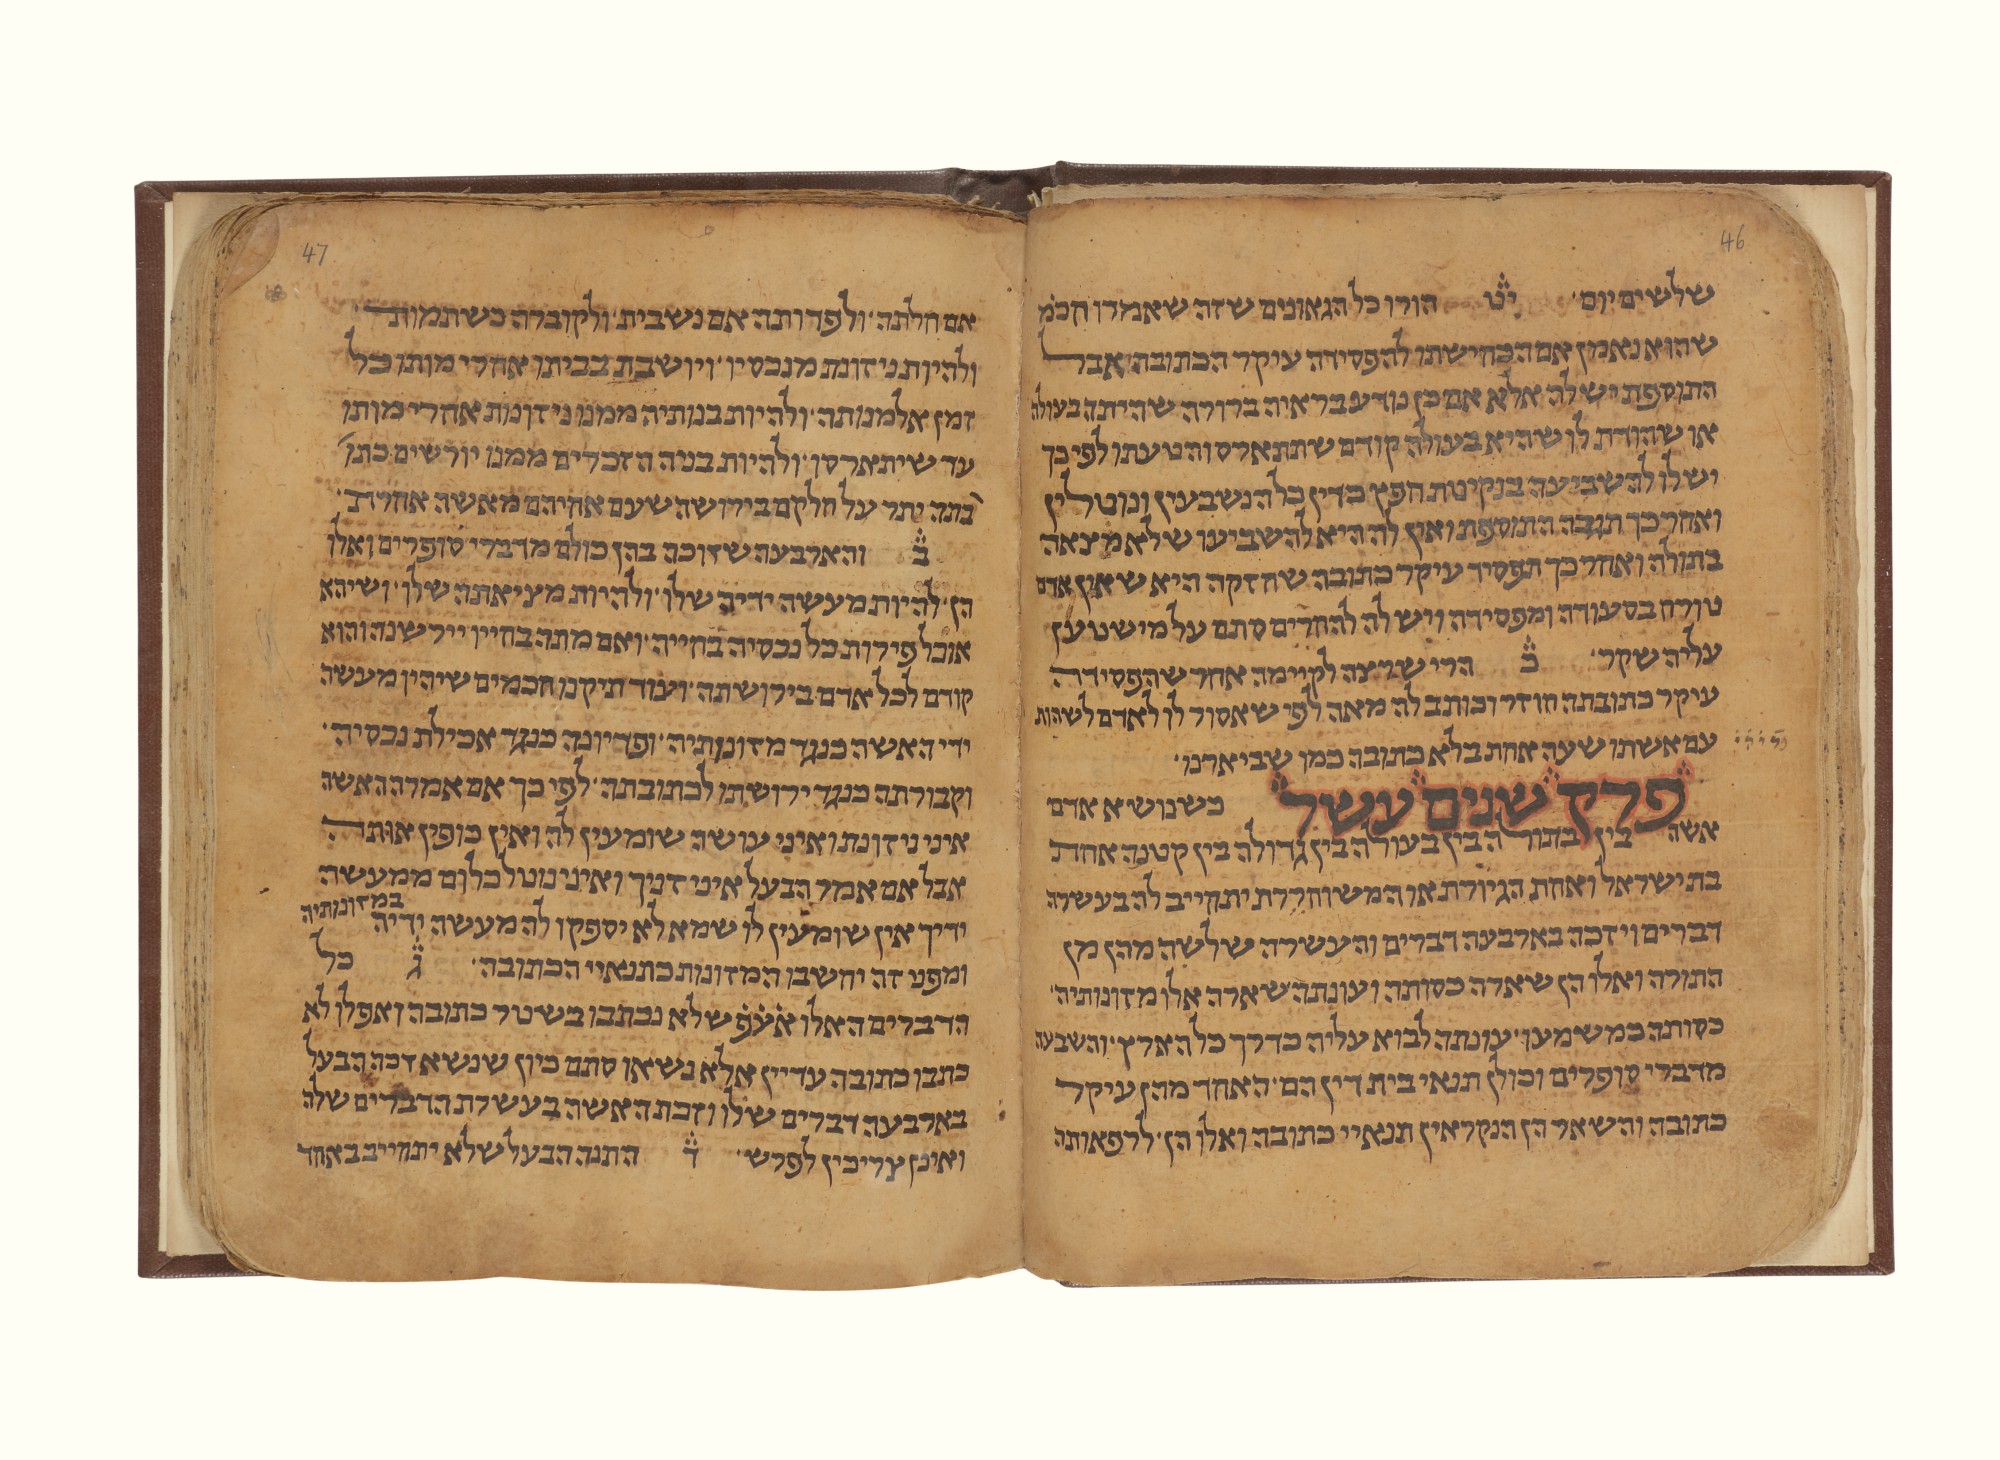 46
שלשים יום · יט הורו כל הגאונים שזה שאמרו חכמ
שהוא נאמן אם הכחישתו להפסידה עיקר הכתובה אבל
התוספת יש לה אלא אם כן נודע בראיה ברורה שהיתה בעולה
או שהודת לו שהיא בעולה קודם שתתארס והטעתו לפיכך
יש לו להשביעה בנקיטת חפץ כדין כל הנשבעין ונוטלין
ואחר כך תגבה התוספת ואין לה היא להשביעו שלא מצאה
בתולה ואחר כך תפסיד עיקר כתובה שחזקה היא שאין אדם
טורח בסעודה ומפסידה ויש לה להחרים סתם על מי שטען
עליה שקר · כ הרי שרצה לקיימה אחר שהפסידה
עיקר כתובתה חוזר וכותב לה מאה לפי שאסור לו לאדם לשהות
עם אשתו שעה אחת בלא כתובה כמו שביארנו ·
פרק שנים עשר כשנושא אדם
אשה בין בתולה בין בעולה בין גדולה בין קטנה אחת
בת ישראל ואחת הגיורת או המשוחררת יתחייב לה בעשרה
דברים ויזכה בארבעה דברים והעשרה שלשה מהן מן
התורה ואלו הן שארה כסותה ועונתה שארה אלו מזונותיה ·
כסותה כמשמעו · עונתה לבוא עליה כדרך כל הארץ · והשבעה
מדברי סופרים וכולן תנאי בית דין הם · האחד מהן עיקר
כתובה והשאר הן הנקראין תנאיי כתובה ואלו הן · לרפאותה
47
אם חלתה · ולפדותה אם נשבית · ולקוברה כשתמות ·
ולהיות ניזונת מנכסיו · ויושבת בביתו אחרי מותו כל
זמן אלמנותה · ולהיות בנותיה ממנו ניזונות אחרי מותו
עד שיתארסו · ולהיות בניה הזכרים ממנו יורשים כתו
בתה יתר על חלקם בירושה שעם אחיהם מאשה אחרת ·
ב והארבעה שזוכה בהן כולם מדברי סופרים ואלו
הן · להיות מעשה ידיה שלו · ולהיות מציאתה שלו · ושיהא
אוכל פירות כל נכסיה בחייה · ואם מתה בחייו יירשנה והוא
קודם לכל אדם בירושתה · ועוד תיקנו חכמים שיהיו מעשה
ידי האשה כנגד מזונותיה · ופדיונה כנגד אכילת נכסיה ·
וקבורתה כנגד ירושתו לכתובתה · לפיכך אם אמרה האשה
איני ניזונת ואיני עושה שומעין לה ואין כופין אותה
אבל אם אמר הבעל איני זניך ואיני נוטל כלום ממעשה
ידיך אין שומעין לו שמא לא יספקו לה מעשה ידיה במזונותיה
ומפני זה יחשבו המזונות כתנאיי הכתובה · ג כל
הדברים האלו אעפ שלא נכתבו בשטר כתובה ואפלו לא
כתבו כתובה עדיין אלא נשאו סתם כיון שנשא זכה הבעל
בארבעה דברים שלו וזכת האשה בעשרת הדברים שלה
ואינן צריכין לפרש · ד התנה הבעל שלא יתחייב באחד